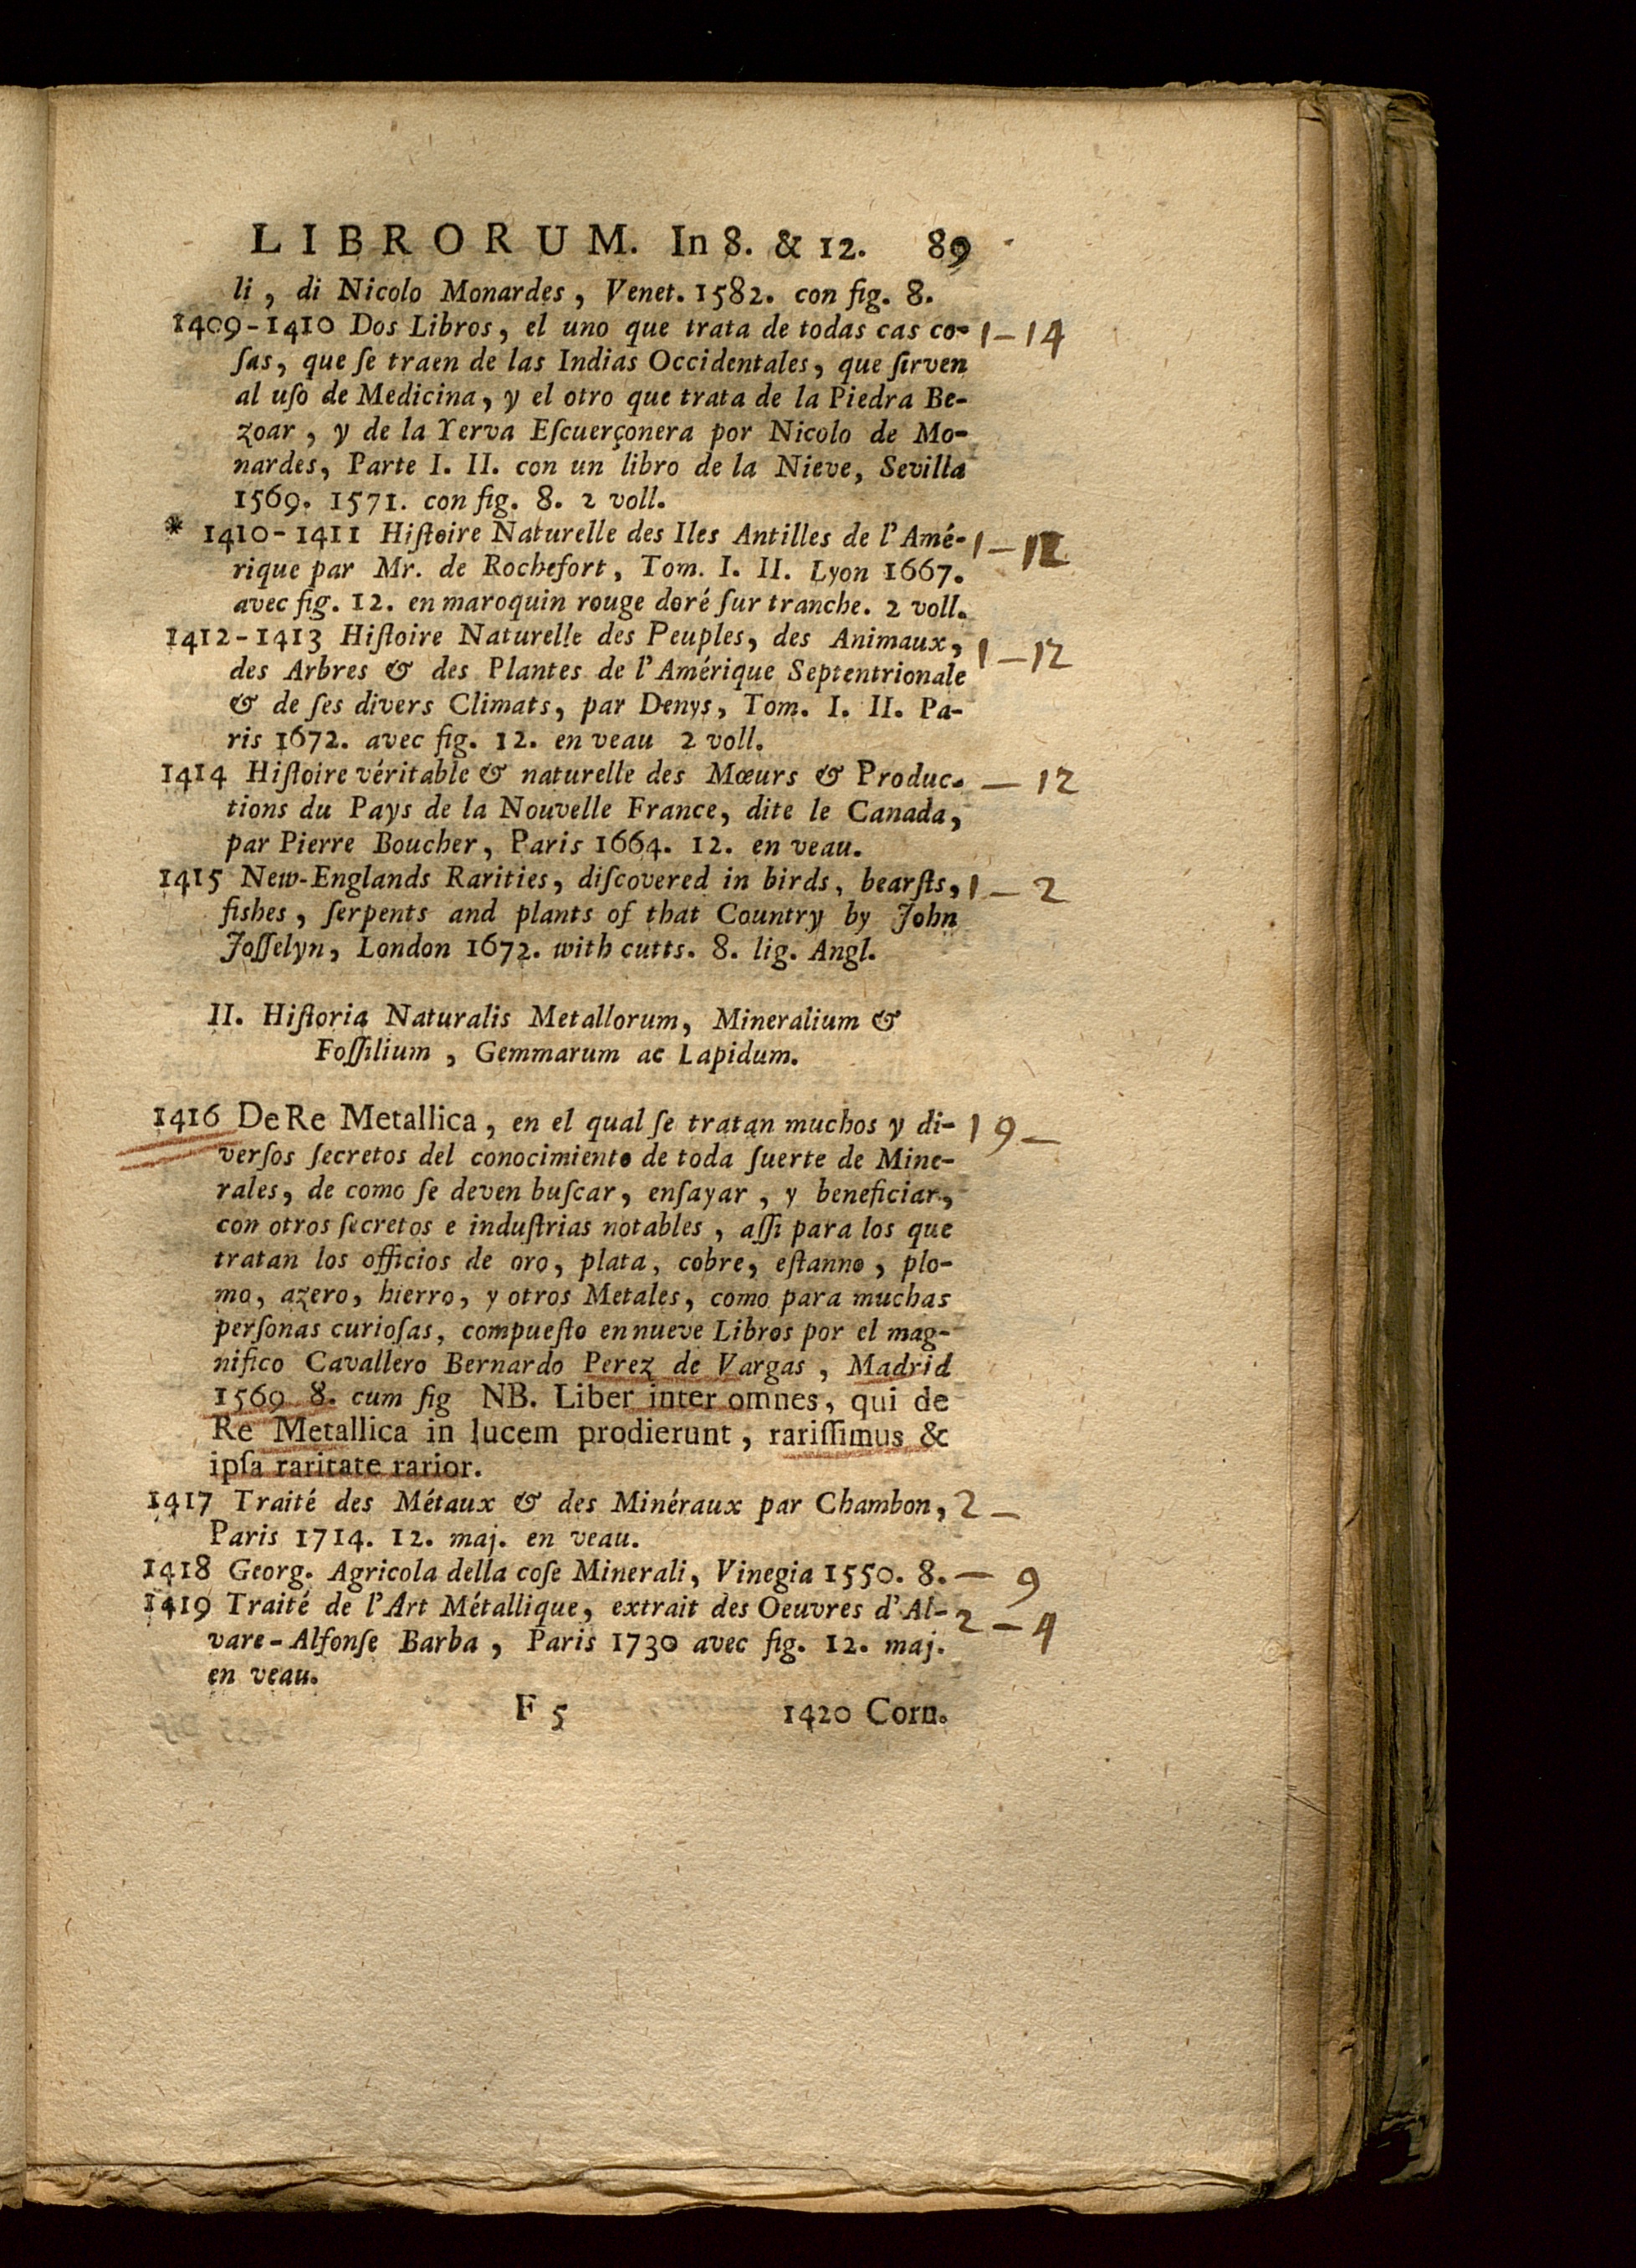 LIBRORUM. In 8. & 12. 89
li, di Nicolo Monardes, Venet. 1582. con fig. 8.
1409-1410 Dos Libros, el uno que trata de todas cas co- 1 – 14
ſas, que ſe traen de las Indias Occidentales, que ſirven
al uſo de Medicina, y el otro que trata de la Piedra Be-
zoar, y de la Yerva Eſcuerçonera por Nicolo de Mo-
nardes, Parte I. II. con un libro de la Nieve, Sevilla
1569. 1571. con fig. 8. 2 voll.
* 1410-1411 Hiſtoire Naturelle des Iles Antilles de l'Amé- 1 – 12
rique par Mr. de Rochefort, Tom. I. II. Lyon 1667.
avec fig. 12. en maroquin rouge doré ſur tranche. 2 voll.
1412-1413 Hiſtoire Naturelle des Peuples, des Animaux, 1 – 12
des Arbres & des Plantes de l'Amérique Septentrionale
& de ſes divers Climats, par Denys, Tom. I. II. Pa-
ris 1672. avec fig. 12. en veau 2 voll.
1414 Hiſtoire véritable & naturelle des Mœurs & Produc- – 12
tions du Pays de la Nouvelle France, dite le Canada,
par Pierre Boucher, Paris 1664. 12. en veau.
1415 New-Englands Rarities, diſcovered in birds, bearſts, 1 – 2
fishes, ſerpents and plants of that Country by John
Joſſelyn, London 1672. with cutts. 8. lig. Angl.
II. Hiſtoria Naturalis Metallorum, Mineralium &
Foſſilium, Gemmarum ac Lapidum.
1416 De Re Metallica, en el qual ſe tratan muchos y di- 19 –
verſos ſecretos del conocimiento de toda ſuerte de Mine-
rales, de como ſe deven buſcar, enſayar, y beneficiar,
con otros ſecretos e induſtrias notables, aſſi para los que
tratan los officios de oro, plata, cobre, eſtanno, plo-
mo, azero, hierro, y otros Metales, como para muchas
perſonas curioſas, compueſto en nueve Libros por el mag-
nifico Cavallero Bernardo Perez de Vargas, Madrid
1569 8. cum fig NB. Liber inter omnes, qui de
Re Metallica in lucem prodierunt, rariſſimus &
ipſa raritate rarior.
1417 Traité des Métaux & des Minéraux par Chambon, 2 –
Paris 1714. 12. maj. en veau.
1418 Georg. Agricola della coſe Minerali, Vinegia 1550. 8. – 9
1419 Traité de l'Art Métallique, extrait des Oeuvres d'Al- 2 – 4
vare-Alfonſe Barba, Paris 1730 avec fig. 12. maj.
en veau.
F 5 1420 Corn.